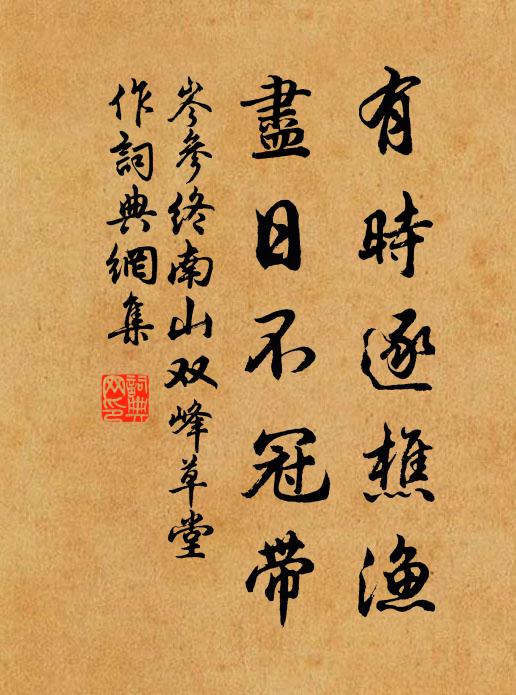 有時逐樵漁
盡日不冠带
岑參终南山双峰草堂
作詞典網集
詞典网印